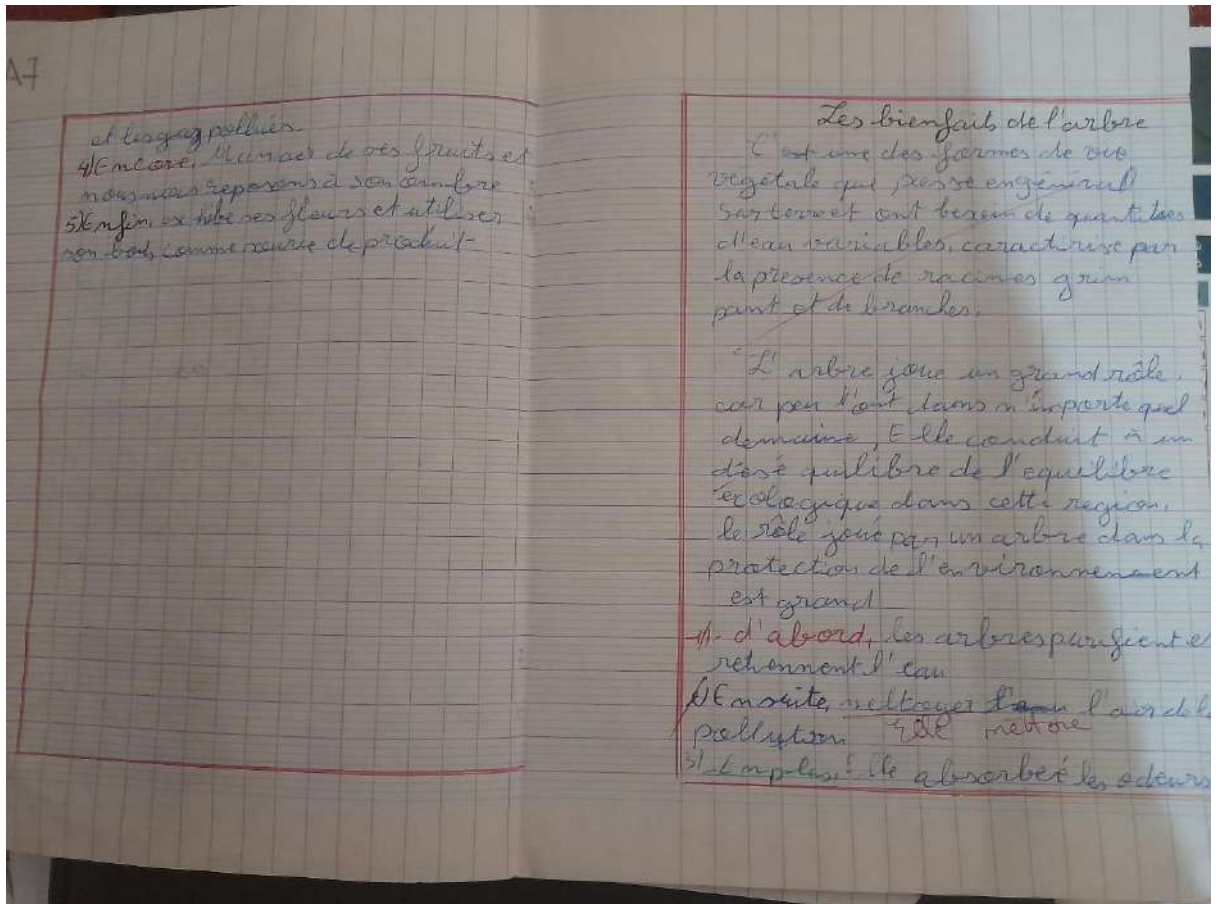 A7
et les gaz polluées.
4) Encore, Manac de ses fruits et
nous nous reposons à son ombre
5) Enfin, ses fleurs et utiliser
son bois comme source de produit-
Les bienfaits de l'arbre
C'est une des formes de vie
vegétale que pousse engénéral
sur terre et ont besoin de quantités
d'eau variables, caractérisé par
la présence de racines grim
pant et de branches.
L'arbre joue un grand rôle
car peu l'ont dans n'importe quel
demaine, Elle conduit à un
désé quilibre de l'equilibre
écologique dans cette region,
le rôle joué par un arbre dans la
protection de l'environnement
est grand
1)- d'abord, les arbres purifient e
retiennent l'eau
Ensuite, nettoyer l'air de l
pollution mettre
3)- En plus, Elle absorbeé les odeurs